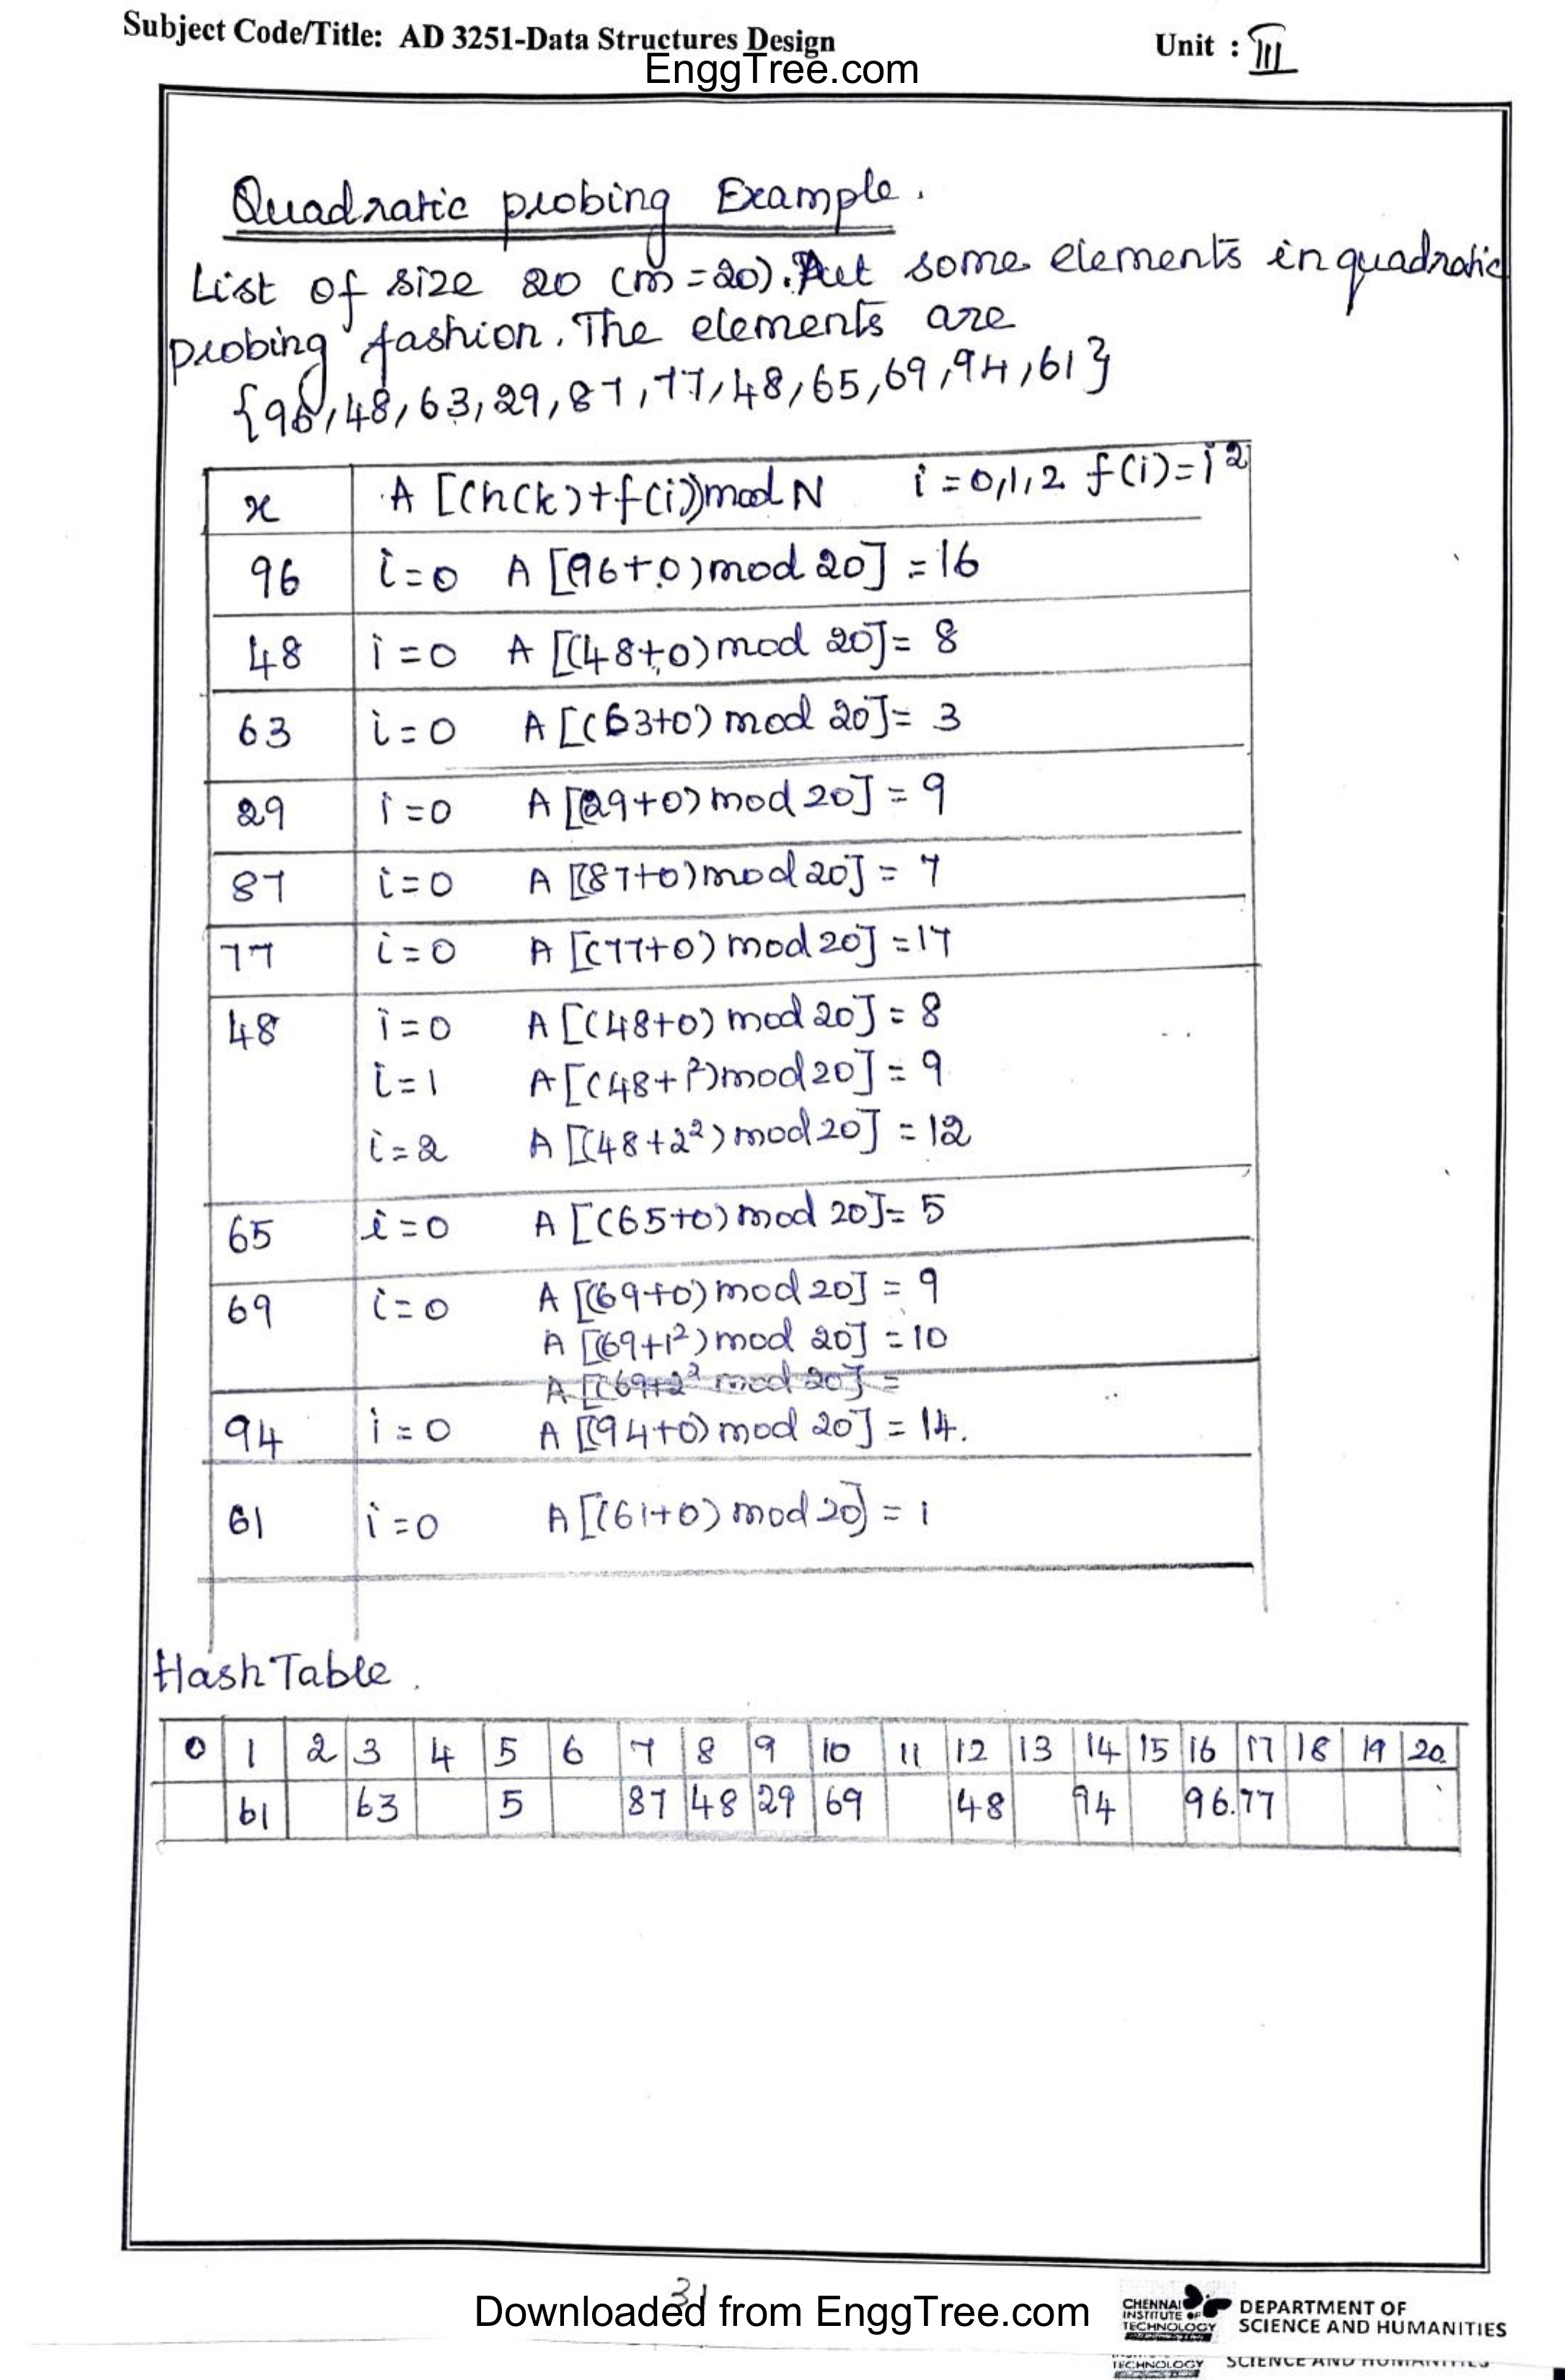 Subject Code/Title: AD 3251-Data Structures Design Unit : III
EnggTree.com
Quadratic probing Example.
List of size 20 (m=20). Put some elements in quadratic
probing fashion. The elements are
{96, 48, 63, 29, 87, 77, 48, 65, 69, 94, 61}
x A [(h(k)+f(i))mod N i=0,1,2 f(i)=i²
96 i=0 A [(96+0)mod 20] =16
48 i=0 A [(48+0)mod 20]= 8
63 i=0 A[(63+0) mod 20]= 3
29 i=0 A [(29+0) mod 20] = 9
87 i=0 A [(87+0)mod 20] = 7
77 i=0 A [(77+0) mod 20] =17
48 i=0 A [(48+0) mod 20] = 8
i=1 A[(48+1²)mod 20] = 9
i=2 A [(48+2²)mod 20] =12
65 i=0 A [(65+0)mod 20]= 5
69 i=0 A [(69+0)mod 20] = 9
A [(69+1²)mod 20] =10
A [(69+2² mod 20] =
94 i=0 A [(94+0)mod 20] =14.
61 i=0 A[(61+0) mod 20] = 1
Hash Table.
0 1 2 3 4 5 6 7 8 9 10 11 12 13 14 15 16 17 18 19 20
61 63 5 87 48 29 69 48 94 96 77
31
Downloaded from EnggTree.com
CHENNAI
INSTITUTE OF
TECHNOLOGY
DEPARTMENT OF
SCIENCE AND HUMANITIES
TECHNOLOGY SCIENCE AND HUMANITIES